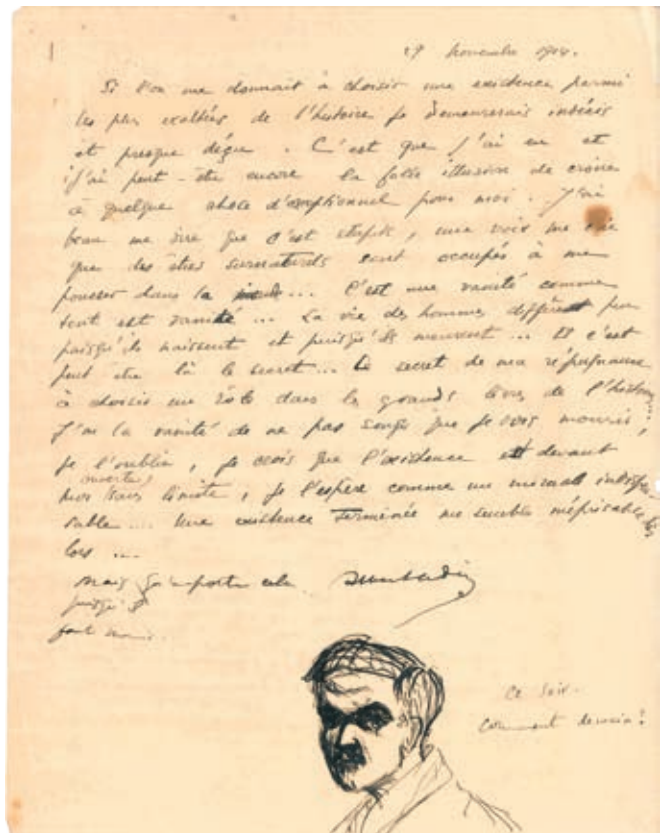 29 novembre 1904.
Si l'on me donnait à choisir une existence parmi
les plus exaltées de l'histoire je demeurerais indécis
et presque déçu. C'est que j'ai eu et
j'ai peut-être encore la folle illusion de croire
à quelque chose d'exceptionnel pour moi. J'ai
beau me dire que c'est stupide, une voix me crie
que des êtres surnaturels sont occupés à me
pousser dans la ... C'est une vanité comme
tout est vanité ... La vie des hommes diffèrent peu
puisqu'ils naissent et puisqu'ils meurent ... Et c'est
peut être là le secret ... Le secret de ma répugnance
à choisir un rôle dans les grands livres de l'histoire
J'ai la vanité de ne pas songer que je vais mourir,
je l'oublie, je crois que l'existence est devant
ouverte,
moi sans limite, je l'espère comme un
... Une existence terminée me semble méprisable
lors ...
Mais qu'importe cela
puisqu'il
faut
Ce soir.
Comment demain?